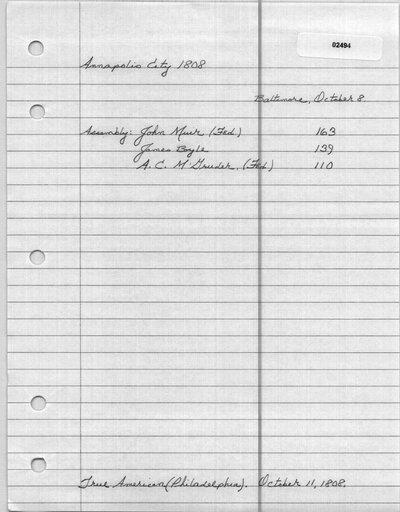 02494
Annapolis City 1808
Baltimore, October 8.
Assembly: John Muir (Fed) 163
James Boyle 139
A. C. M'Gruder, (Fed) 110
True American (Philadelphia). October 11, 1808.